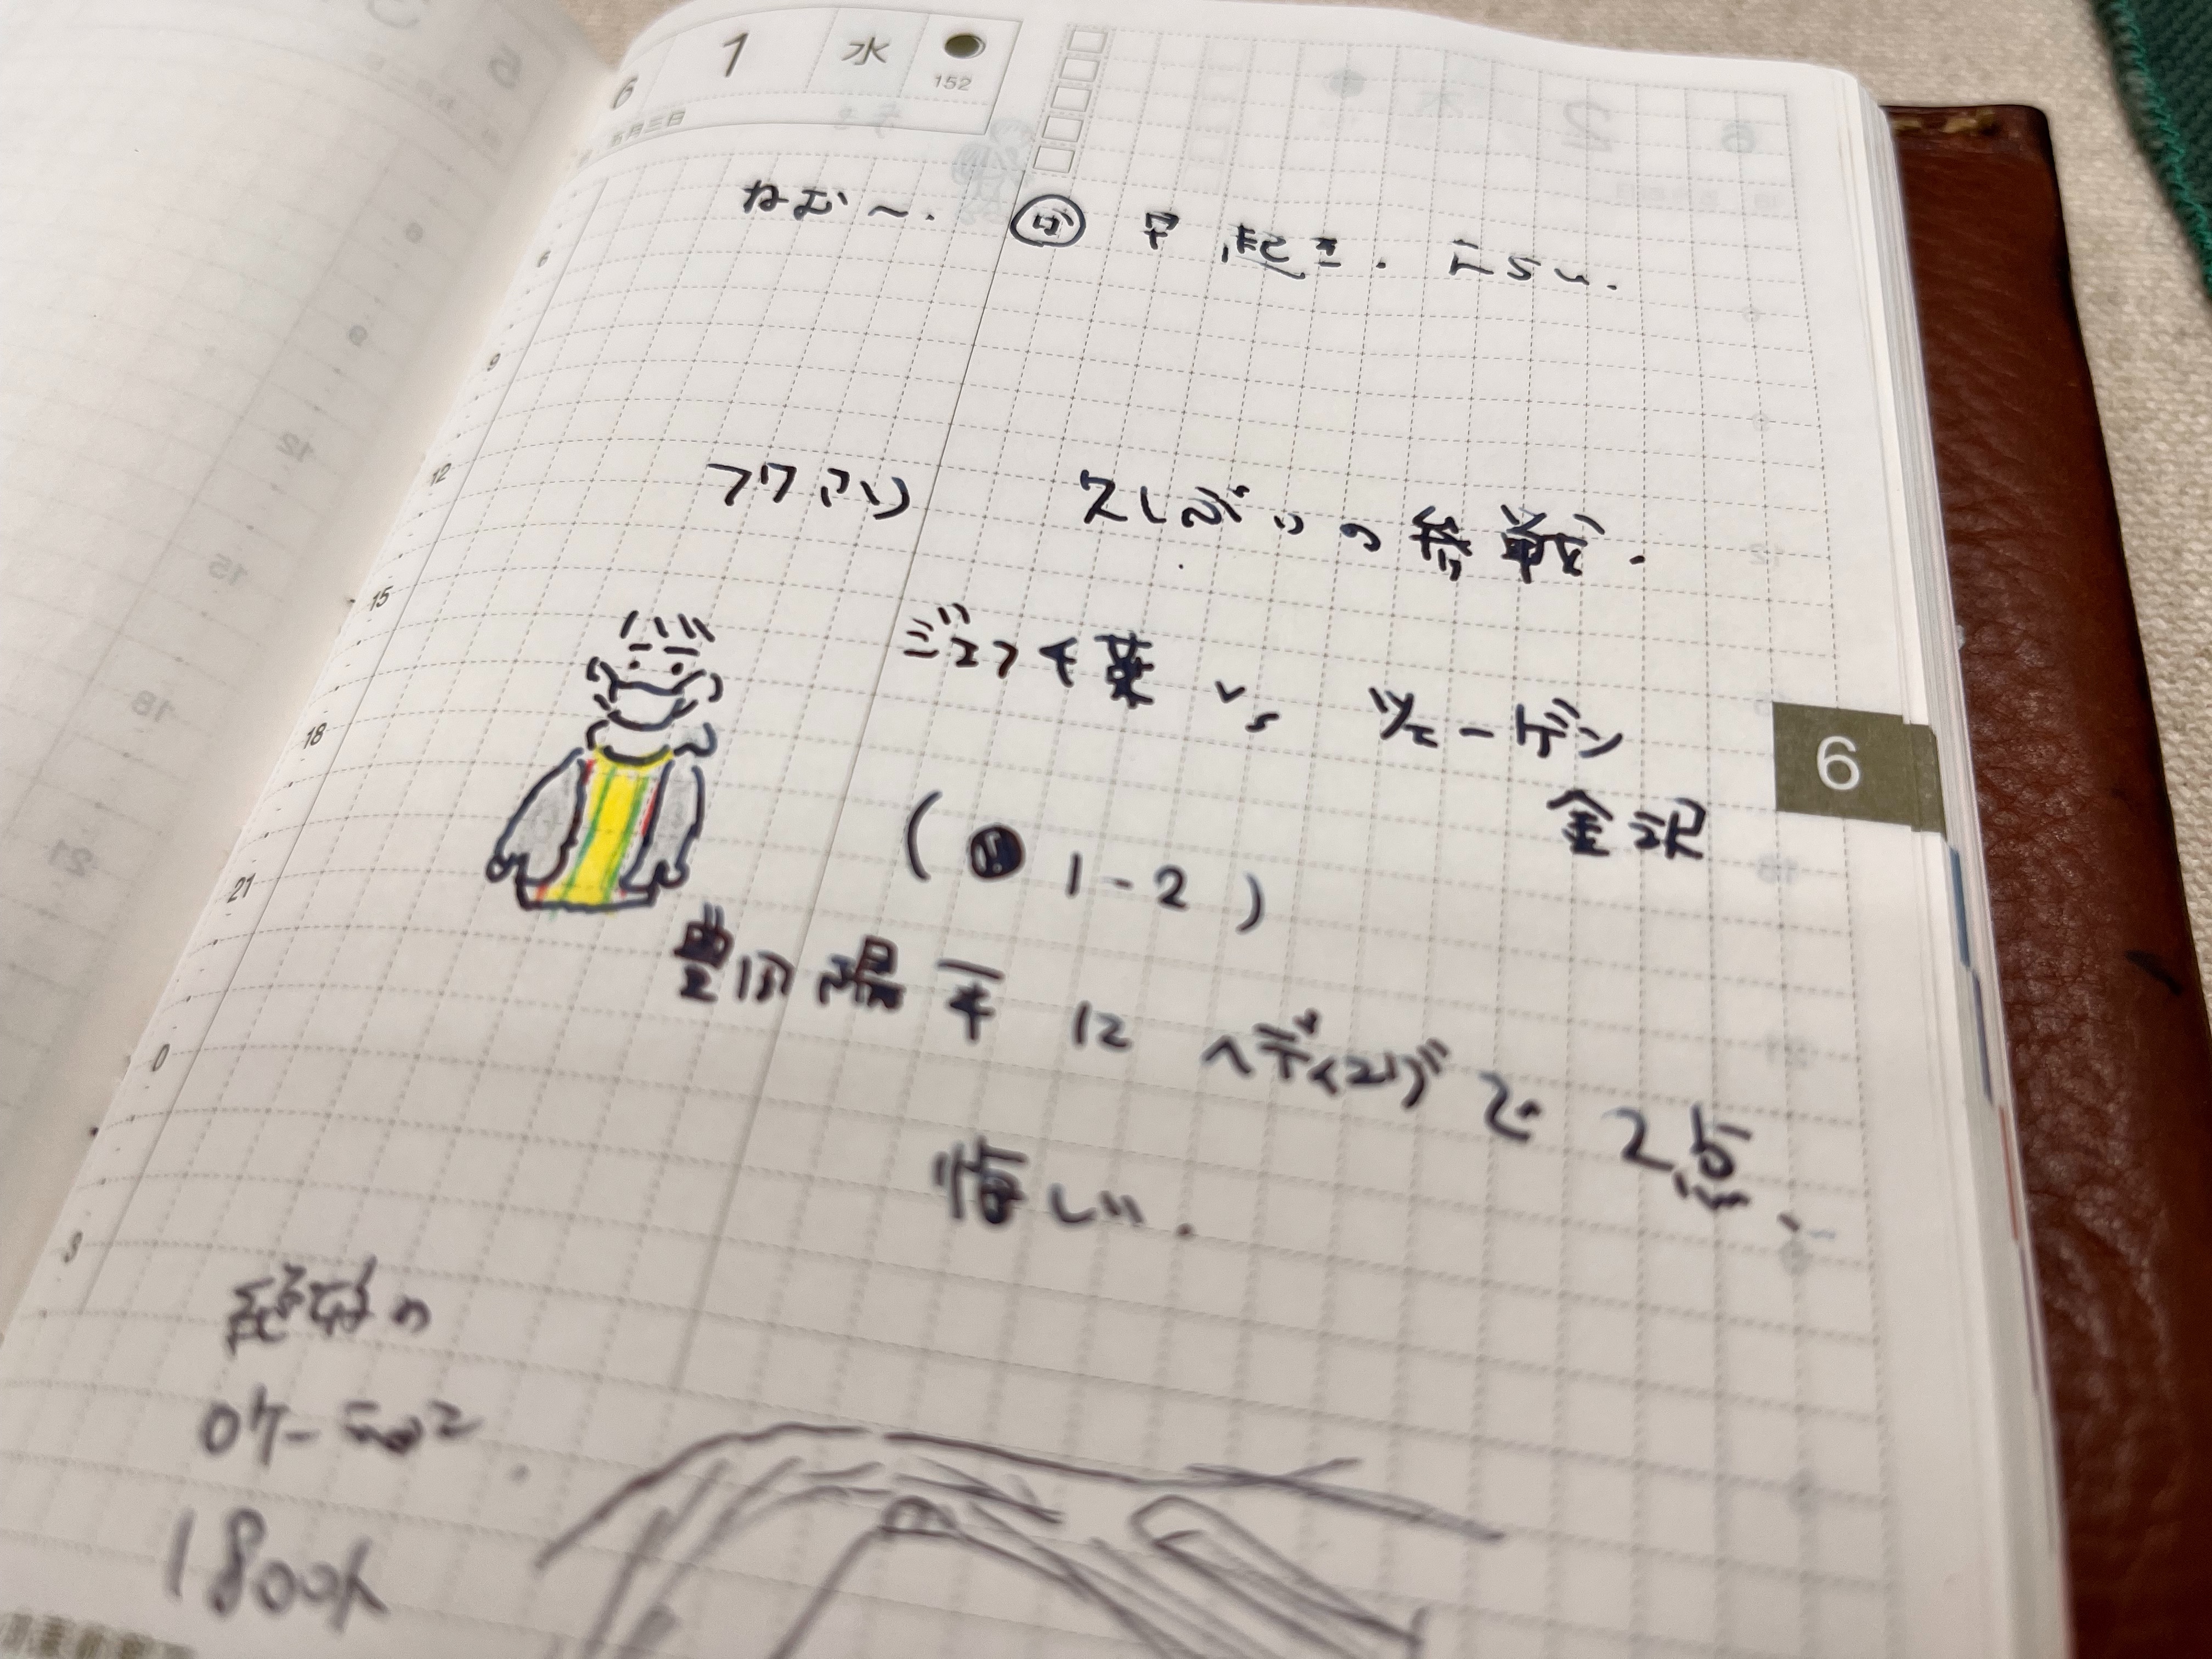 6 1 水
152
五月三日
ねむ〜. ば 早起き. えらい.
フクアリ 久しぶりの参戦.
ジェフ千葉 vs ツエーゲン
金沢
( ● 1-2 )
豊田陽平にヘディングで2点、
悔しい.
絶好の
ロケーションで
1800人
6
6
9
12
15
18
21
0
3